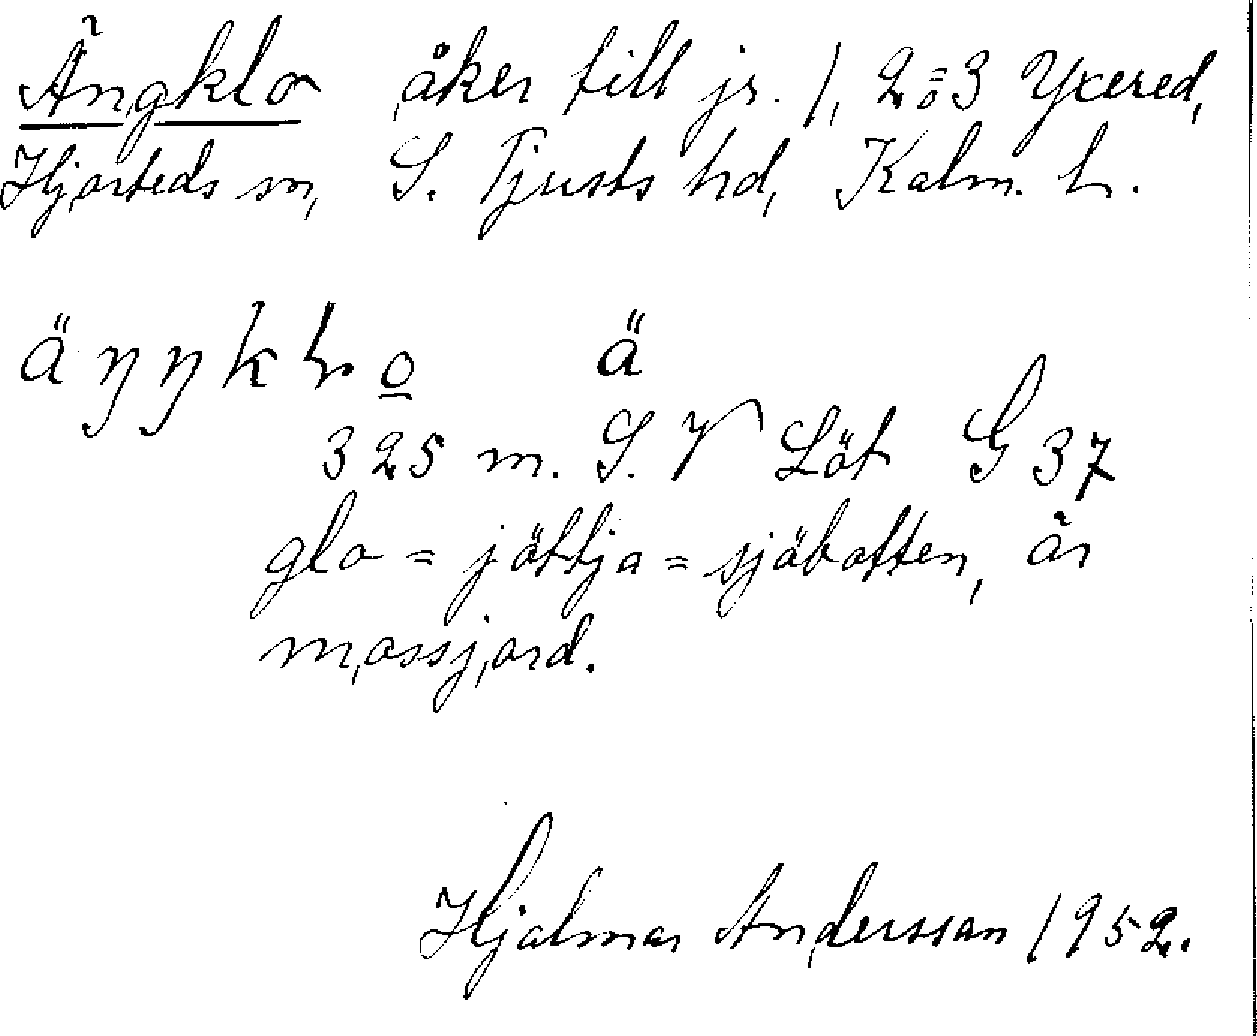 Ängklo åker till js. 1, 2 o 3 Yxered,
Hjorteds sn, S. Tjusts hd, Kalm. L.
äŋŋklo ä
325 m. S.V Löt G 37
glo = jöttja = sjöbotten, är
mossjord.
Hjalmar Andersson 1952.